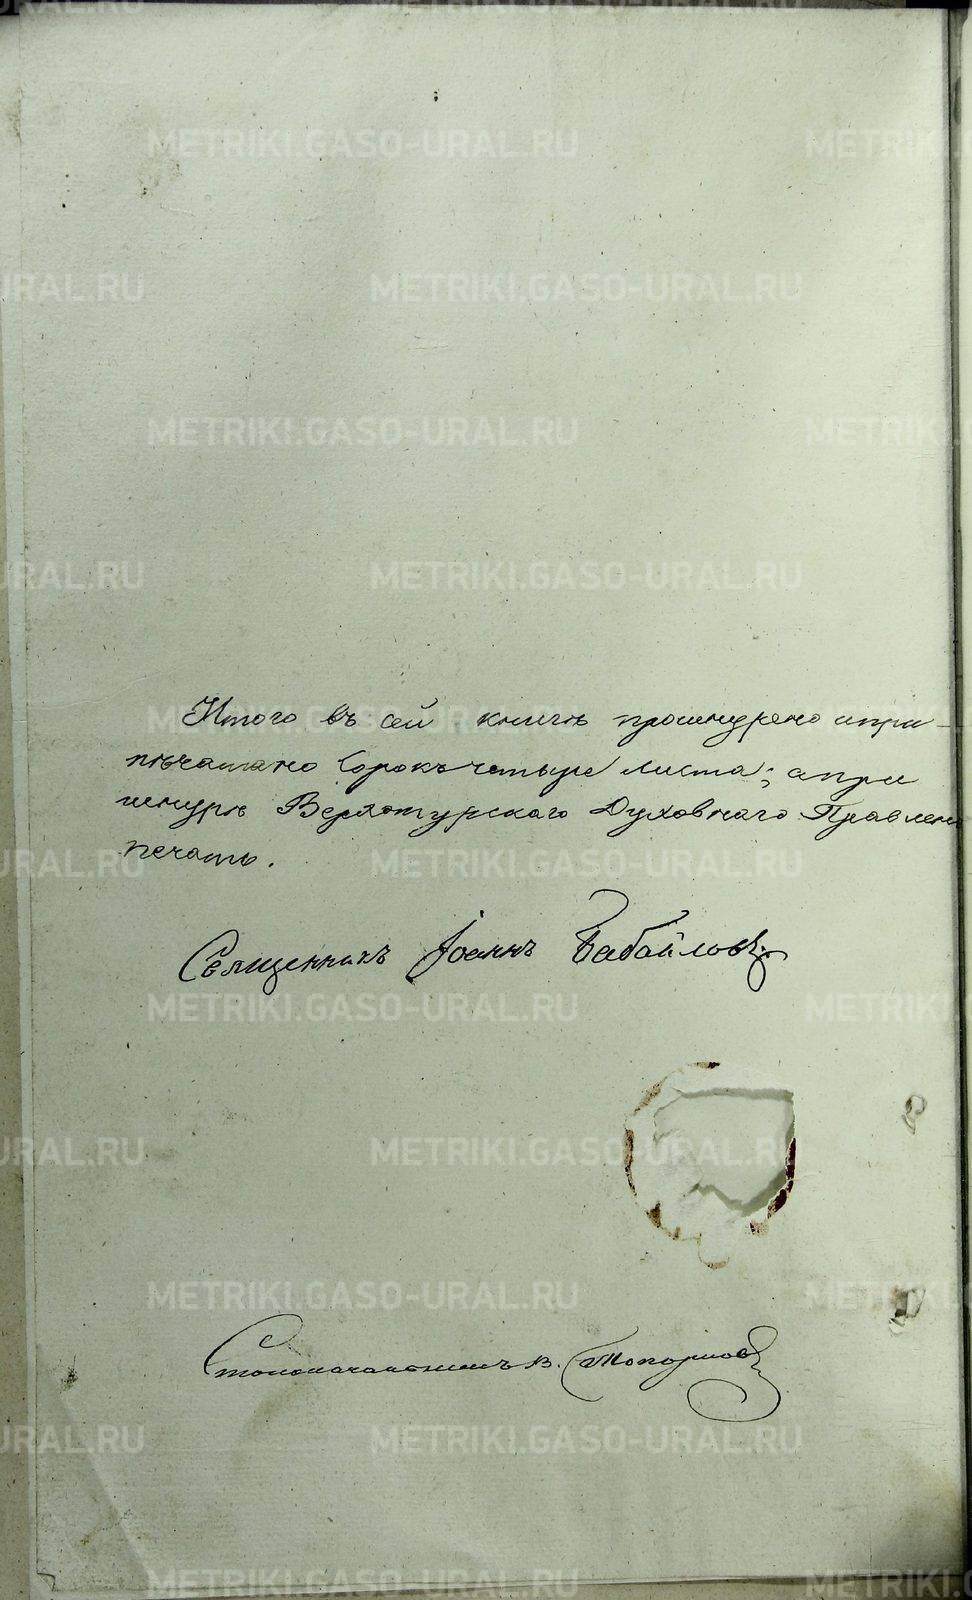 Итого въ сей книгѣ прошнурено и при-
пѣчатано сорокъ четыре листа; а при
шнурѣ Верхотурскаго Духовнаго Правлен
печать.
Священникъ Іоаннъ Бабайловъ
Столоначальникъ В. Топорковъ
METRIKI.GASO-URAL.RU